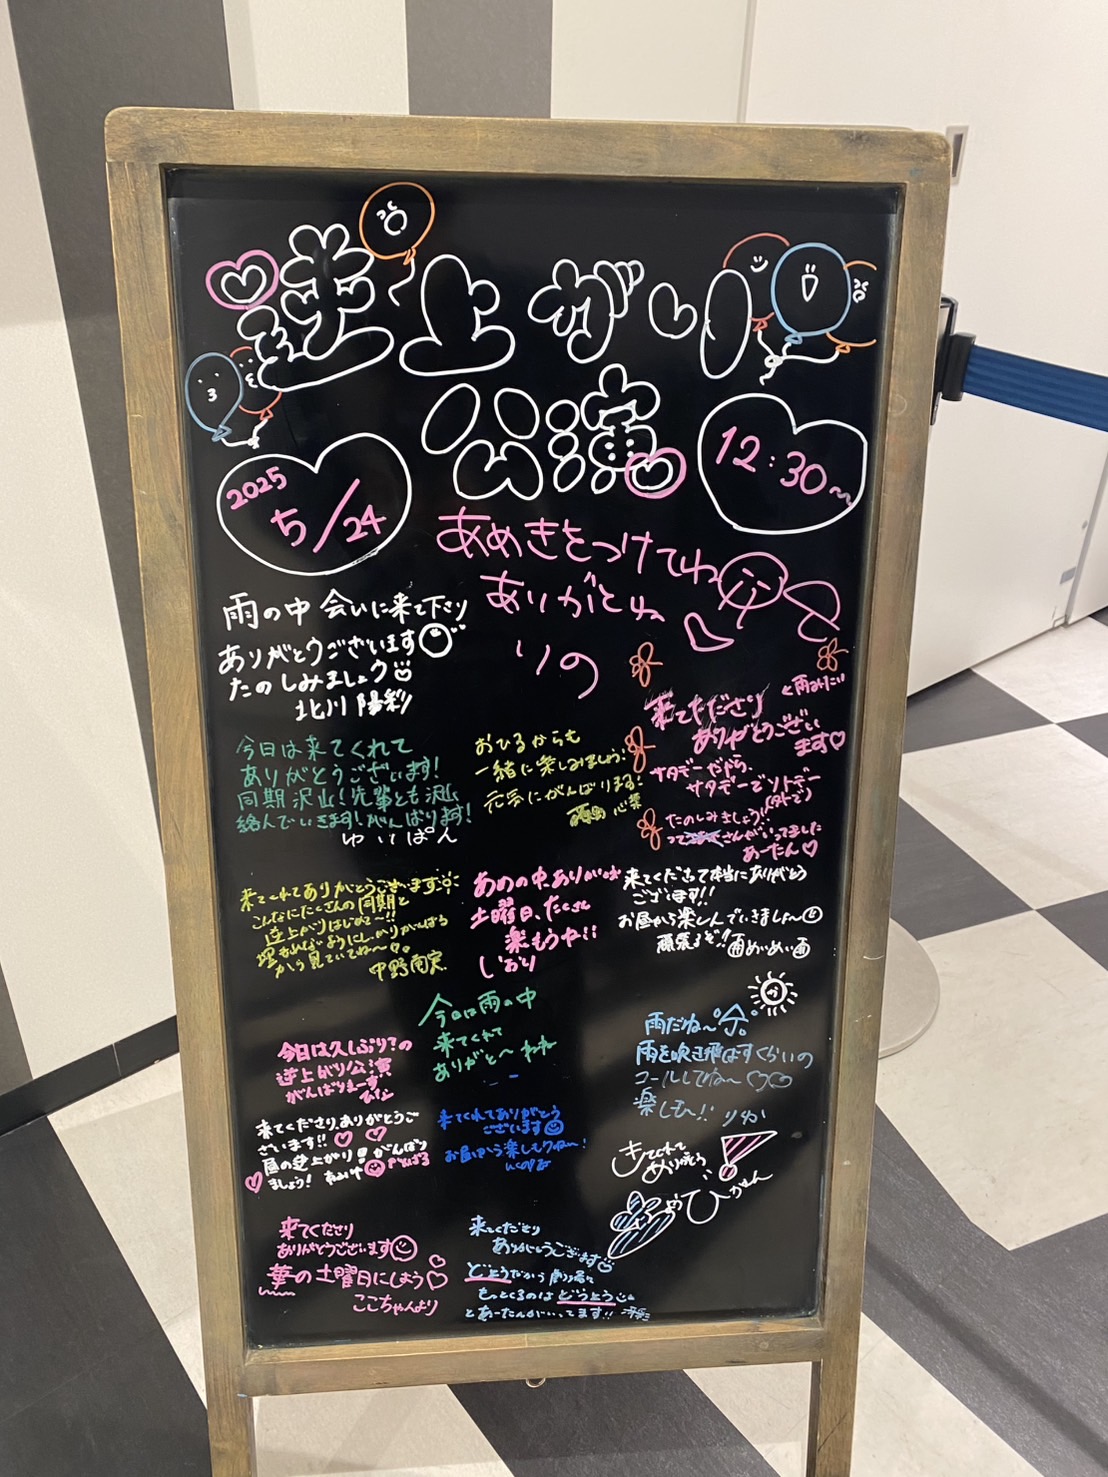 逆上がり
公演
2025
5/24
12:30〜
あめきをつけてね
ありがとね
りの
雨の中 会いに来て下さり
ありがとうございます
たのしみましょう
北川 陽彩
←雨みたい
来てくださり
ありがとうござい
ます♡
サタデーだから、
サタデーでソトデー
(外で)
たのしみましょう!
さんがいってました
あーたん♡
今日は来てくれて
ありがとうございます!
同期沢山!先輩とも沢山
絡んでいきます!がんばります!
ゆいぽん
おひるからも
一緒に楽しみましょう!
元気にがんばります!
心菜
来てくれてありがとうございます
こんなにたくさんの同期と
逆上がりはじめて〜!!
埋もれないようにしっかりがんばる
から見ていてね〜
中野南実
あめの中、ありがとう
土曜日、たくさん
楽もうね!!
しおり
来てくださって本当にありがとう
ございます!!
お昼から楽しんでいきましょ〜
頑張るぞ!! めいめい
今日は雨の中
来てくれて
ありがと〜
雨だね〜
雨を吹き飛ばすくらいの
コールしてね〜♡♡
楽しも〜!! りか
今日は久しぶり?の
逆上がり公演
がんばりまーす
来てくださり、ありがとうご
ざいます!!♡♡
昼の逆上がり がんばり
ましょう!
がんばる
来てくれてありがとう
ございます
お昼から楽しもうね〜!
きてくれて
ありがとう
来てくださり
ありがとうございます
華の土曜日にしよう♡
ここちゃんより
来てくださり
ありがとうございます
どようだから劇場に
もってくるのはどうよう
とあーたんがいってます!!